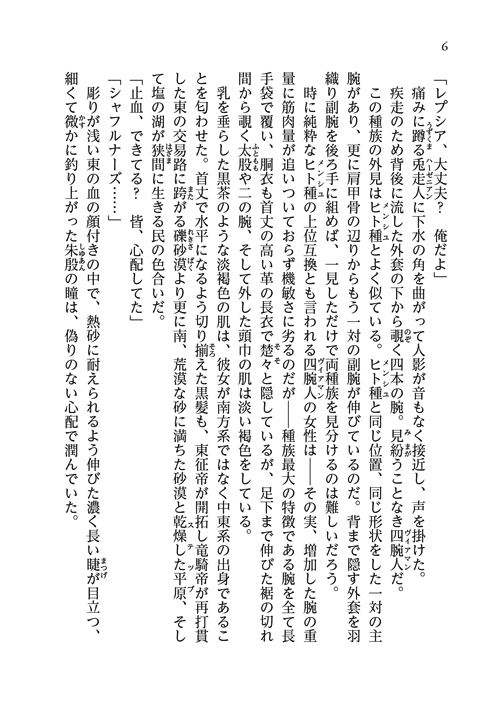 6
「レプシア、大丈夫？　俺だよ」
痛みに蹲る兎走人に下水の角を曲がって人影が音もなく接近し、声を掛けた。
疾走のため背後に流した外套の下から覗く四本の腕。見紛うことなき四腕人だ。
この種族の外見はヒト種とよく似ている。ヒト種と同じ位置、同じ形状をした一対の主
腕があり、更に肩甲骨の辺りからもう一対の副腕が伸びているのだ。背まで隠す外套を羽
織り副腕を後ろ手に組めば、一見しただけで両種族を見分けるのは難しいだろう。
時に純粋なヒト種の上位互換とも言われる四腕人の女性は――その実、増加した腕の重
量に筋肉量が追いついておらず機敏さに劣るのだが――種族最大の特徴である腕を全て長
手袋で覆い、胴衣も首丈の高い革の長衣で楚々と隠しているが、足下まで伸びた裾の切れ
間から覗く太股や二の腕、そして外した頭巾の肌は淡い褐色をしている。
乳を垂らした黒茶のような淡褐色の肌は、彼女が南方系ではなく中東系の出身であるこ
とを匂わせた。首丈で水平になるよう切り揃えた黒髪も、東征帝が開拓し竜騎帝が再打貫
した東の交易路に跨がる礫砂漠より更に南、荒漠な砂に満ちた砂漠と乾燥した平原、そし
て塩の湖が狭間に生きる民の色合いだ。
「止血、できてる？　皆、心配してた」
「シャフルナーズ……」
彫りが浅い東の血の顔付きの中で、熱砂に耐えられるよう伸びた濃く長い睫が目立つ、
細くて微かに釣り上がった朱殷の瞳は、偽りのない心配で潤んでいた。